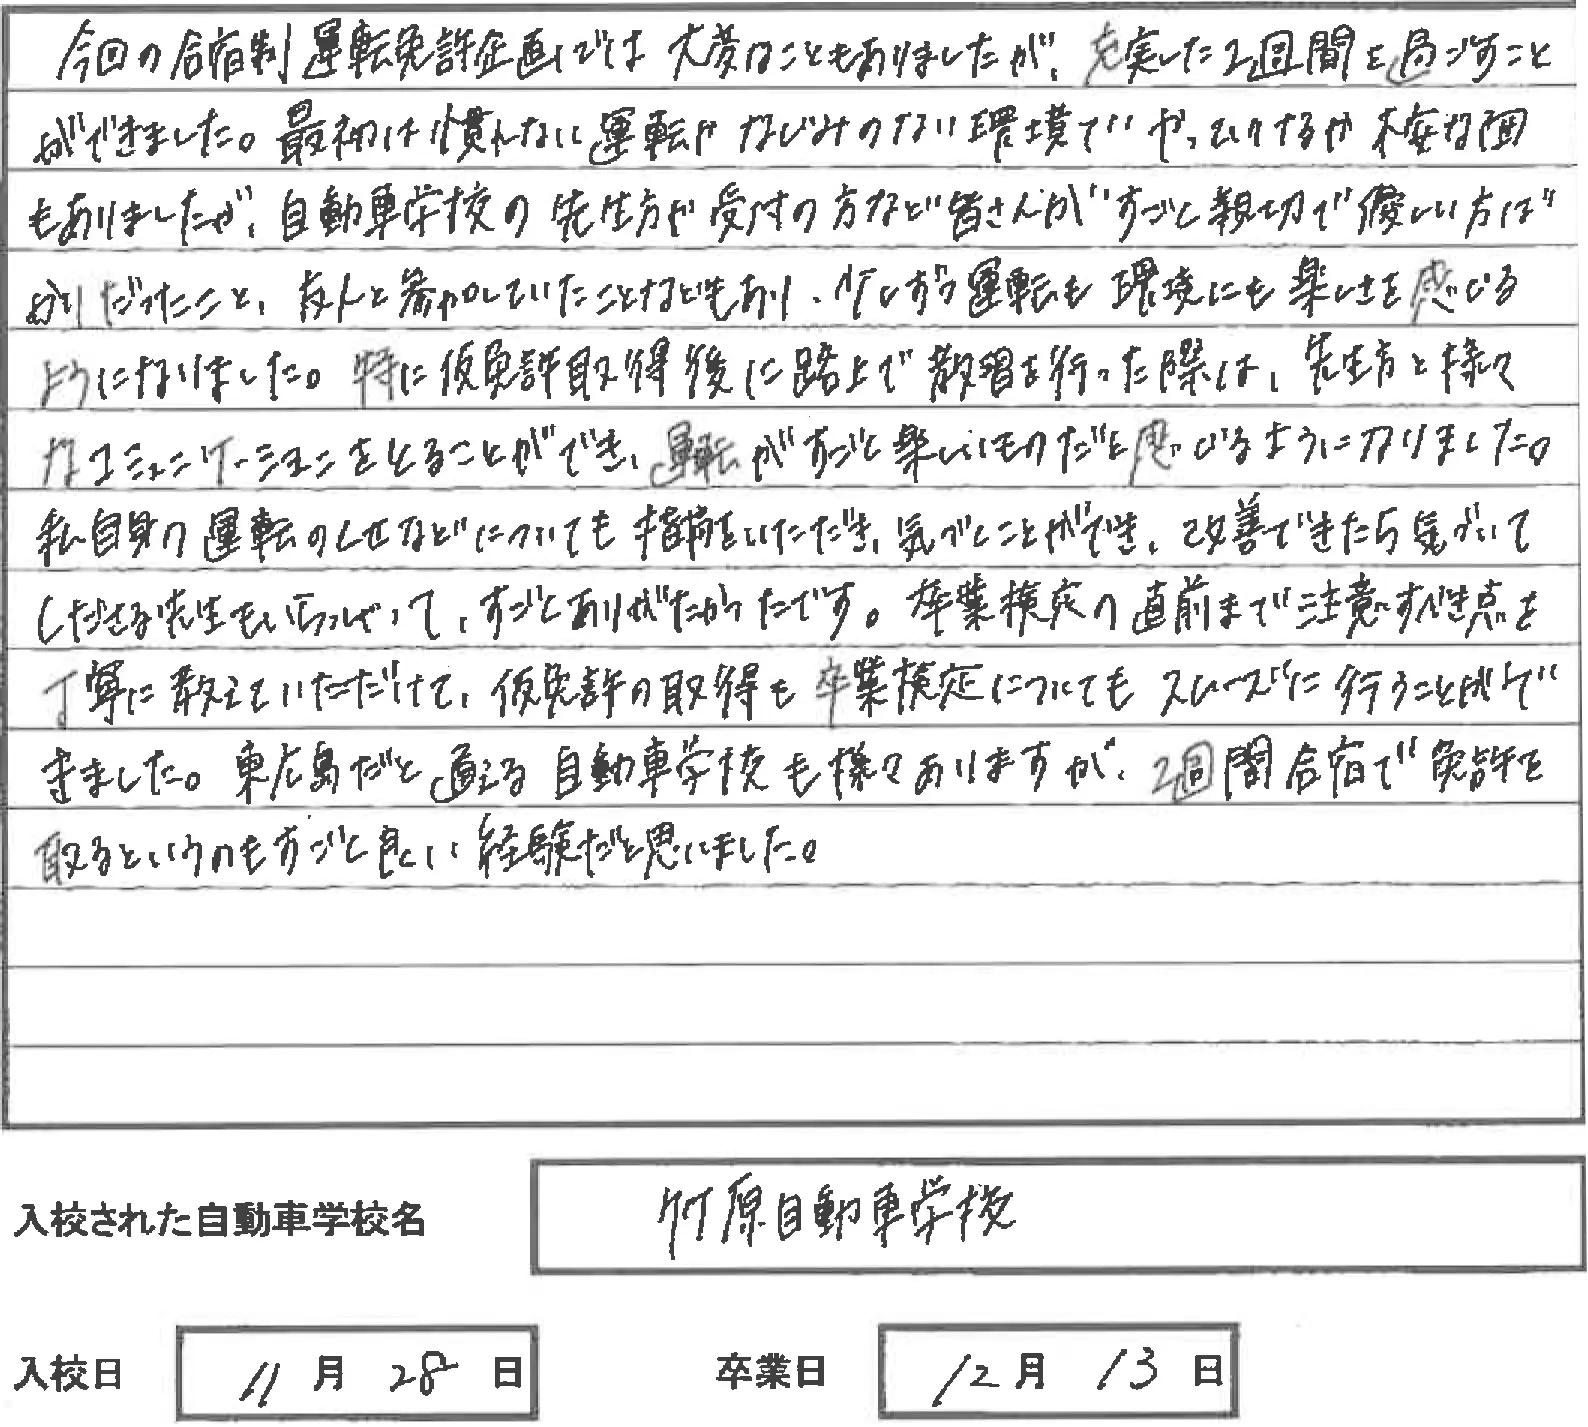 今回の合宿制運転免許企画では大変なこともありましたが、充実した2週間を過ごすこと
ができました。最初は慣れない運転やなじみのない環境でやっていけるか不安な面
もありましたが、自動車学校の先生方や受付の方など皆さんがすごく親切で優しい方ば
かりだったこと、友人と参加していたことなどもあり、少しずつ運転も環境にも楽しさを感じる
ようになりました。特に仮免許取得後に路上で教習を行った際は、先生方と様々
なコミュニケーションをとることができ、運転がすごく楽しいものだと感じるようになりました。
私自身の運転のくせなどについても指摘をいただき、気づくことができ、改善できたら気づいて
くださる先生もいらっしゃって、すごくありがたかったです。卒業検定の直前まで注意すべき点を
丁寧に教えていただけて、仮免許の取得も卒業検定についてもスムーズに行うことがで
きました。東広島だと通える自動車学校も様々ありますが、2週間合宿で免許を
取るというのもすごく良い経験だと思いました。
入校された自動車学校名 竹原自動車学校
入校日 11月28日 卒業日 12月13日